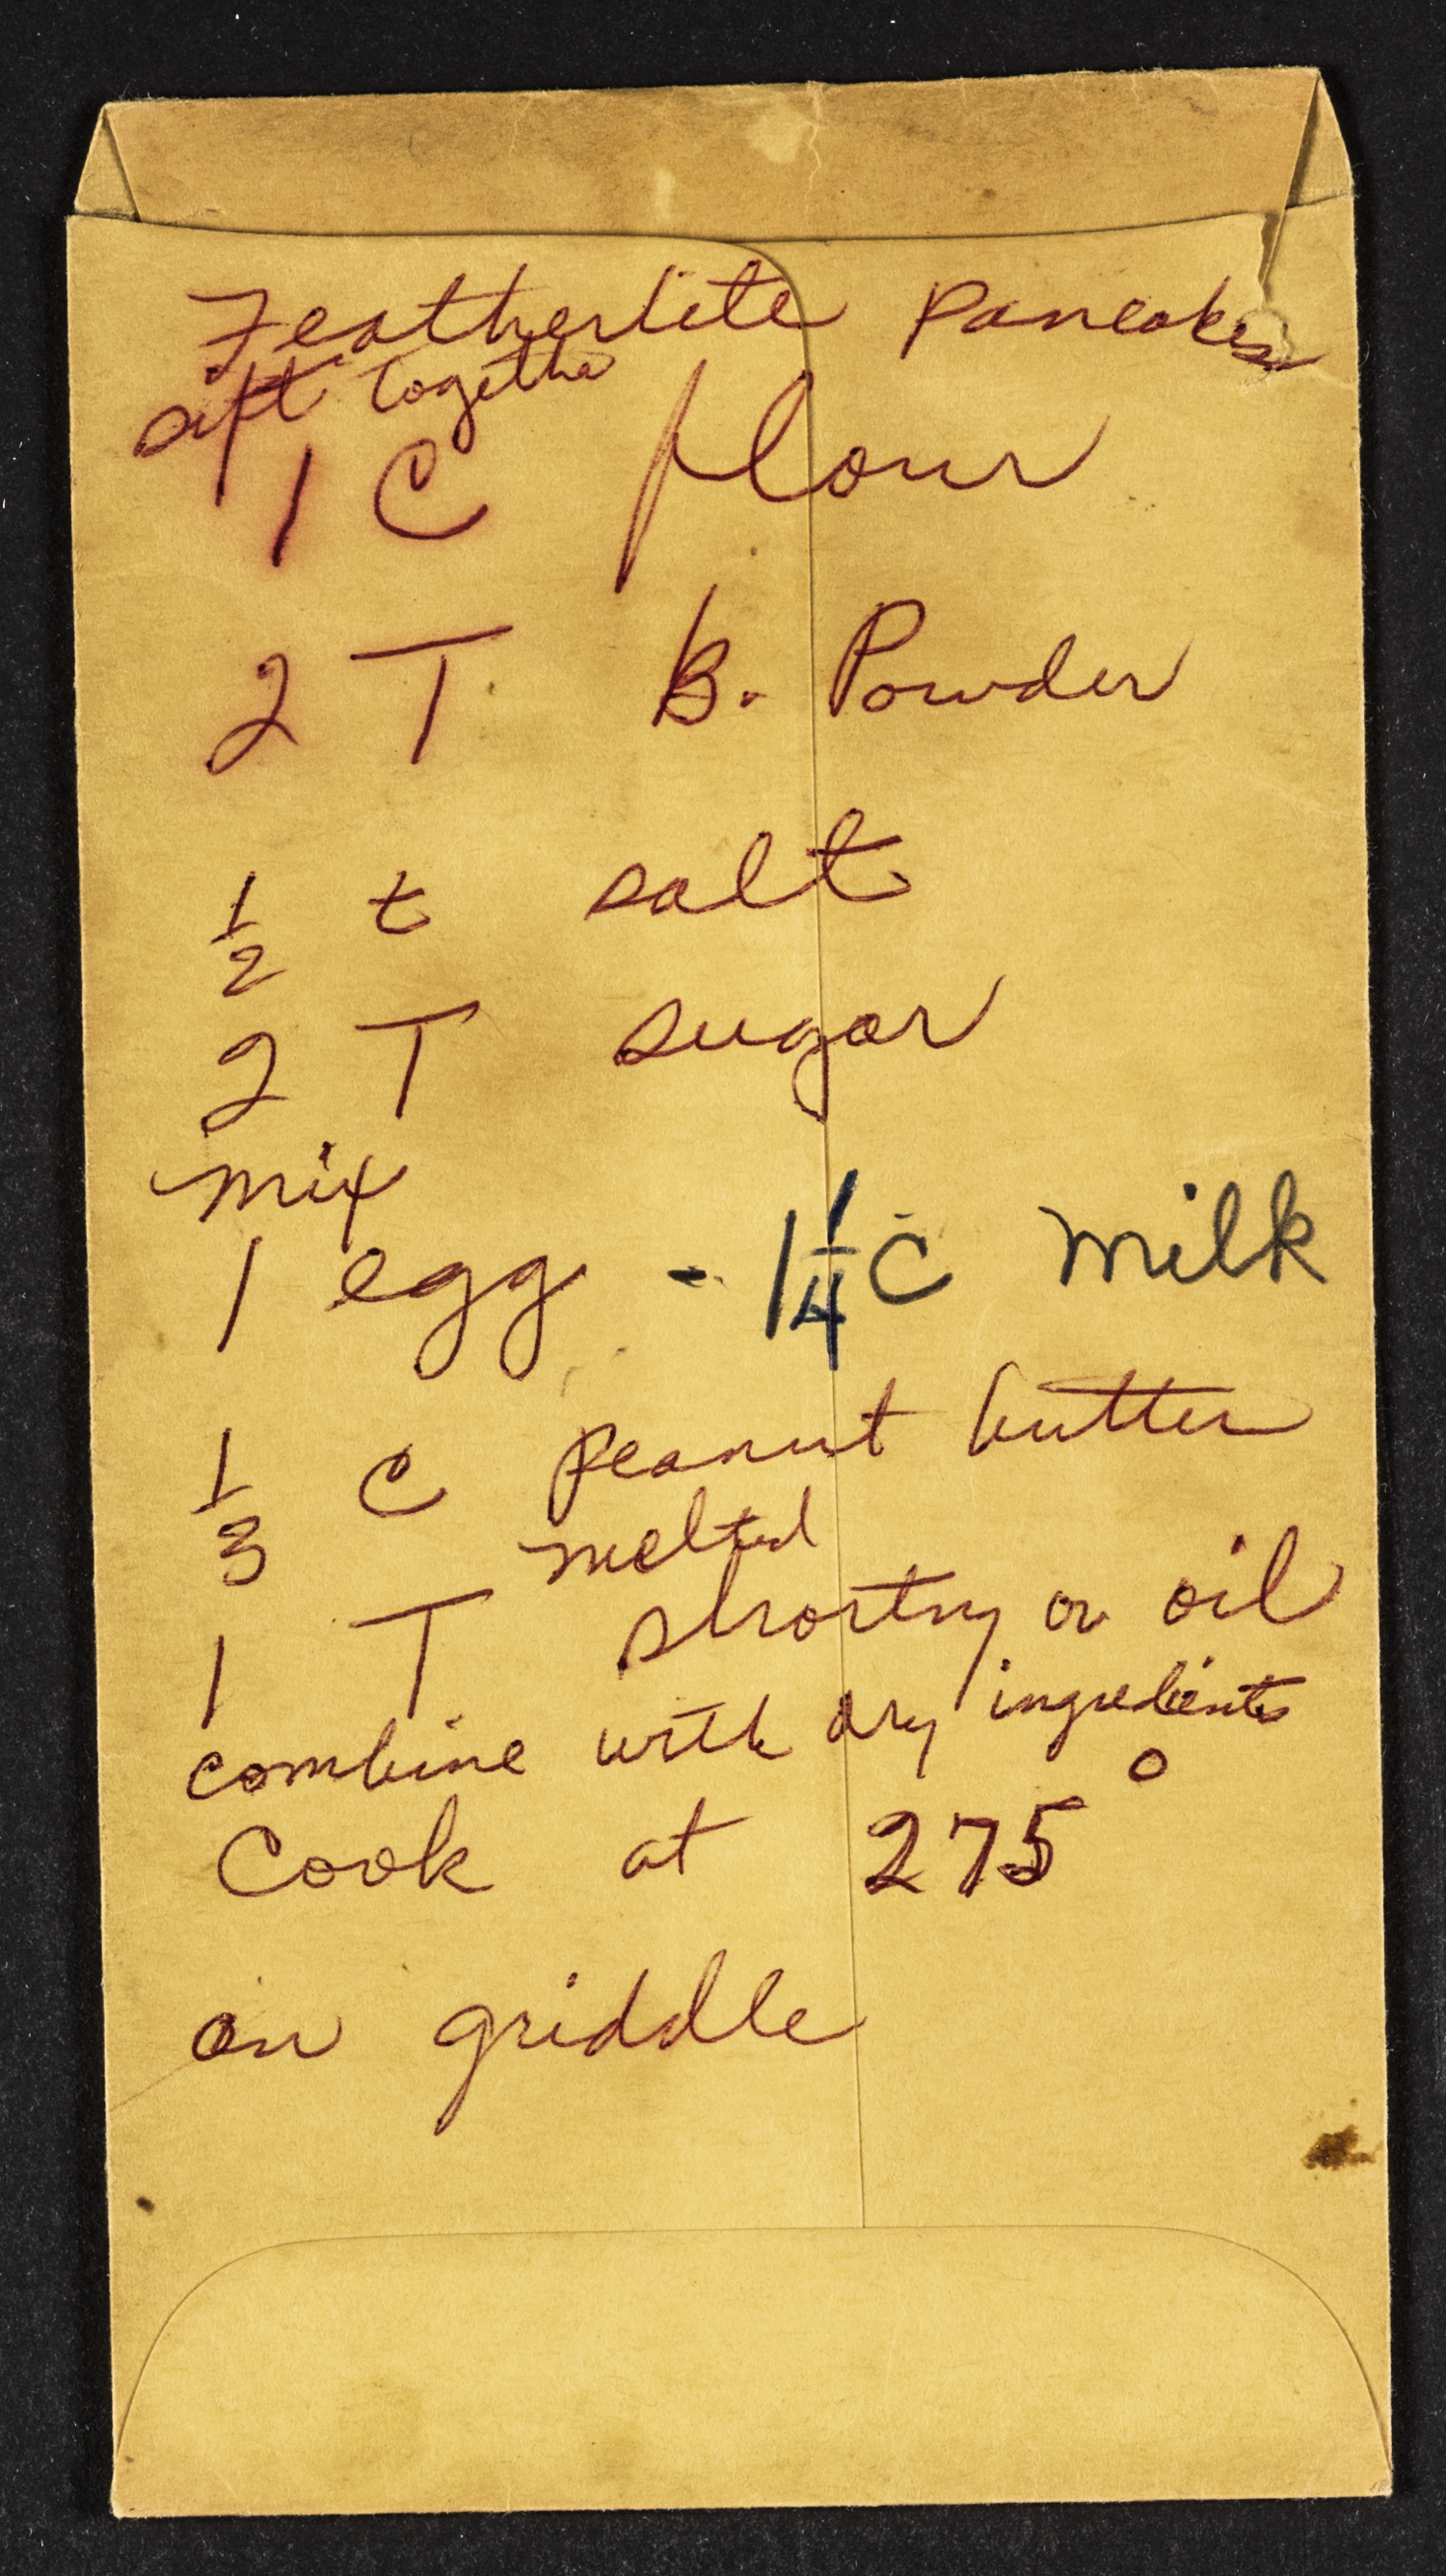 Featherlite Pancakes
sift together
1 C flour
2 T B. Powder
1/2 t salt
2 T sugar
mix
1 egg - 1 1/4 C milk
1/3 C Peanut butter
melted
1 T shortny or oil
combine with dry ingredients
Cook at 275°
on griddle